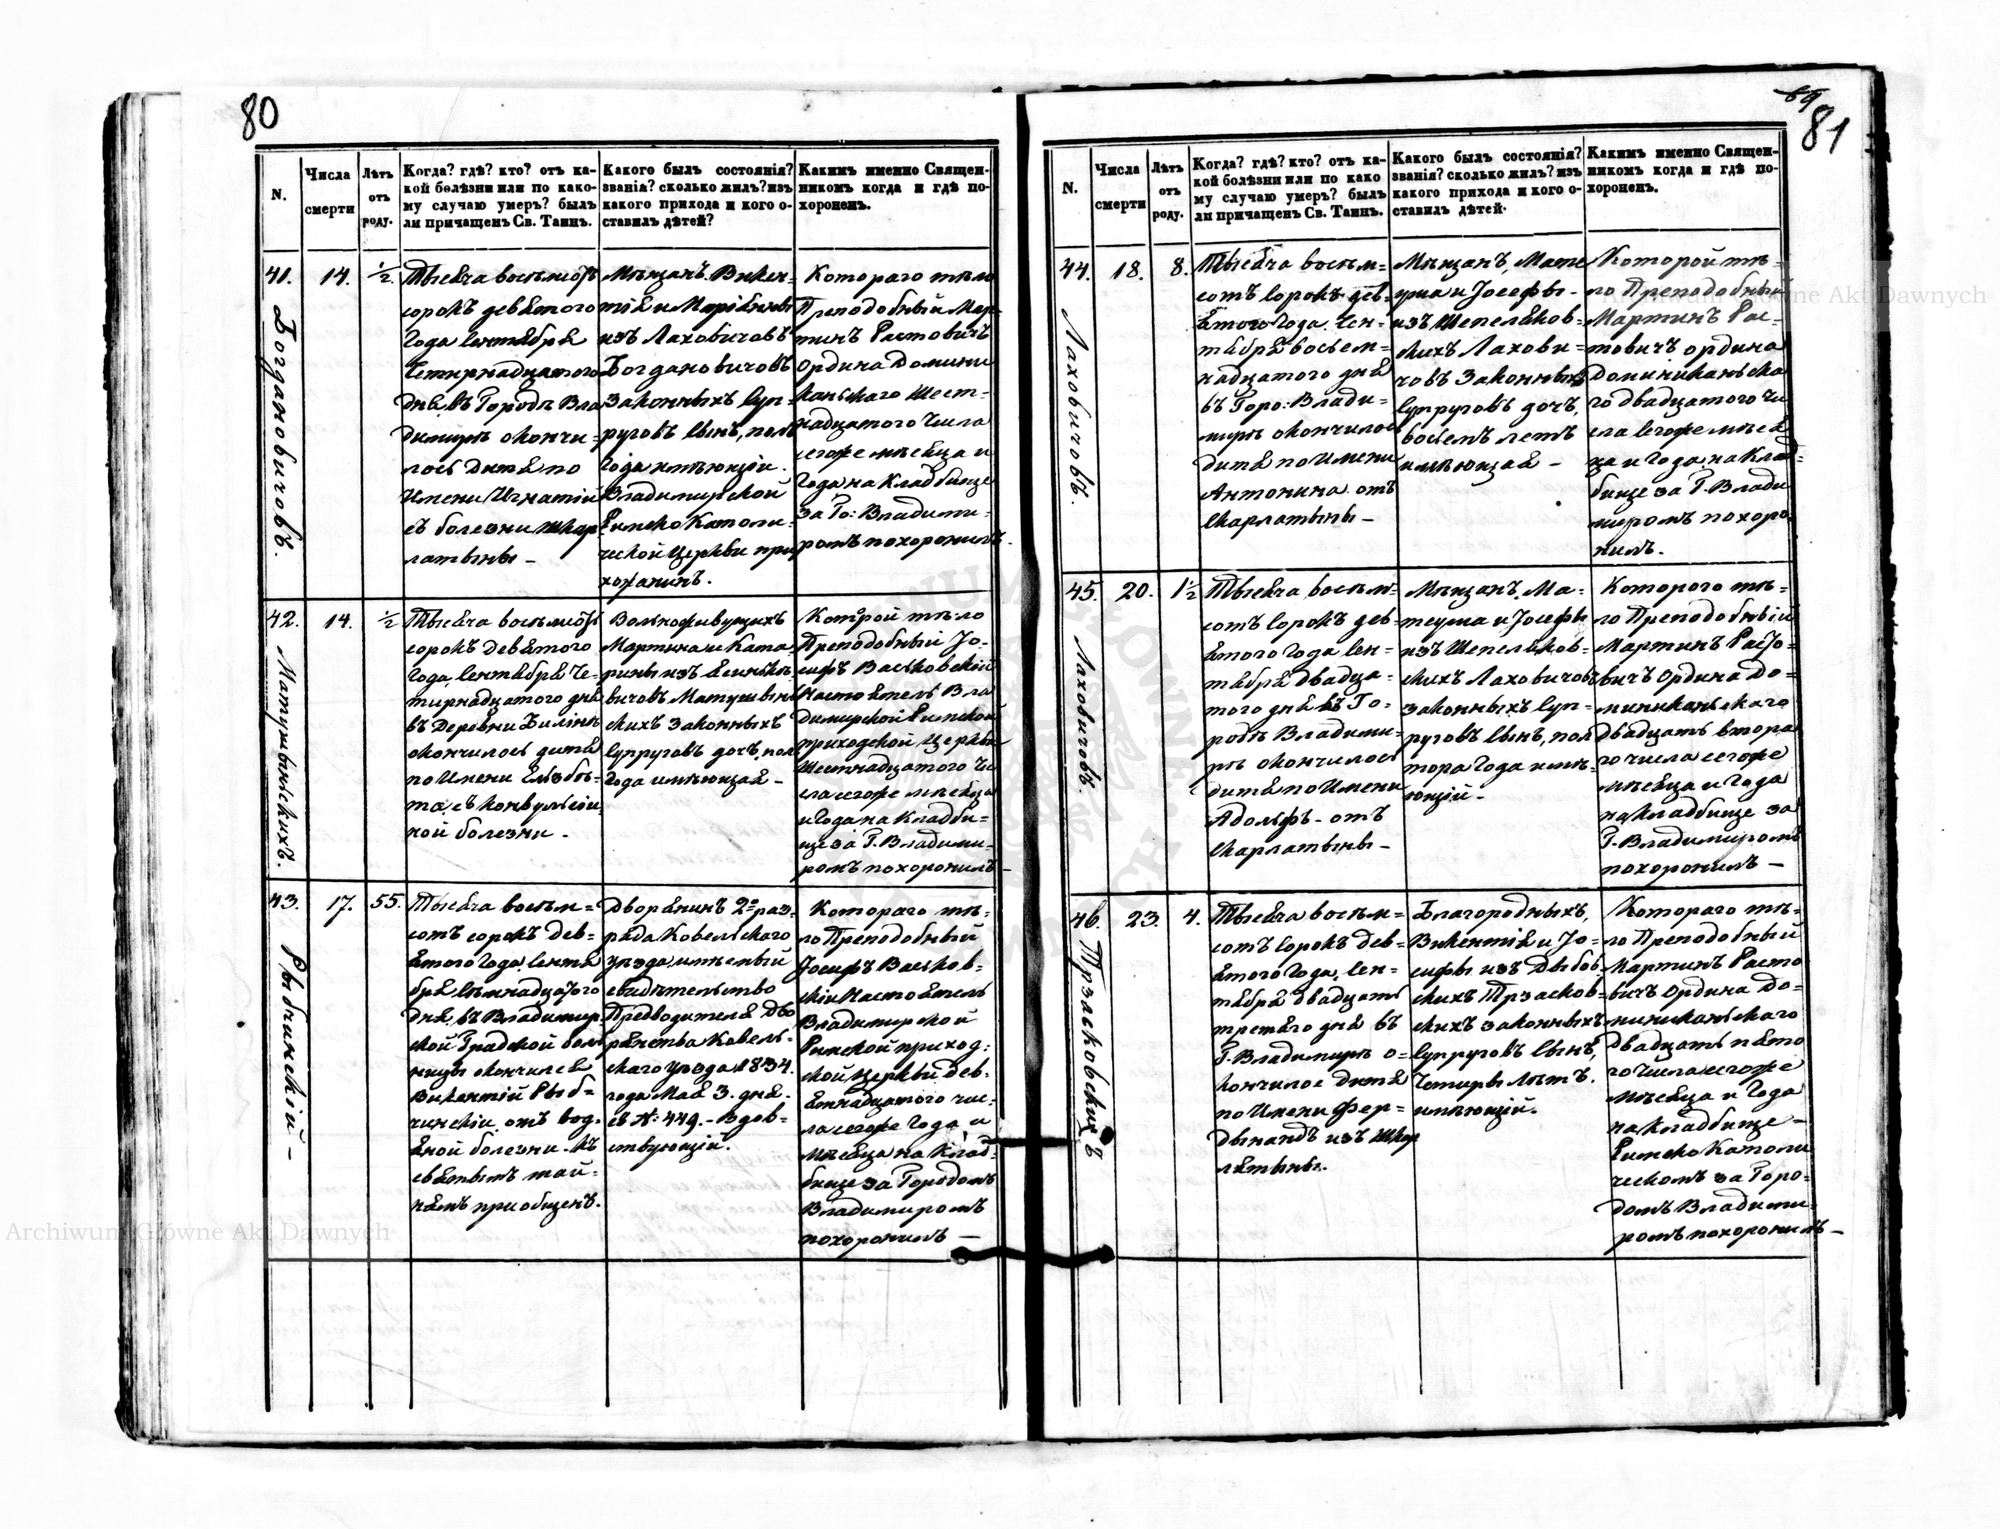 80
N.
Числа
смерти
Лѣтъ
отъ
роду.
Когда? гдѣ? кто? отъ ка-
кой болѣзни или по како-
му случаю умеръ? былъ
ли причащенъ Св. Таинъ.
Какого былъ состоянія?
званія? сколько жилъ? изъ
какого прихода и кого о-
ставилъ дѣтей?
Какимъ именно Священ-
никомъ когда и гдѣ по-
хороненъ.
41.
Богдановичовъ.
14.
½
Тысяча восемьсотъ
сорокъ девятого
Года Сентября
Четырнадцатого
дня, въ Городѣ Вла
димирѣ окончи-
лось дитя по
Имени Игнатій
съ болезни шкар
латыны –
Мѣщанъ Викен-
тія и Маріянны
изъ Лаховичовъ
Богдановичовъ
Законныхъ Суп-
руговъ сынъ, пол
года имѣющій.
Владимирской
Римско Католи-
ческой Церкви при
хожанинъ.
Котораго тѣло
Преподобный Мар-
тинъ Растовичъ
Ордина Домини
каньского Шест-
надцатого Числа
сегоже мѣсяца и
Года на Кладбище
за Го: Владими-
ромъ похоронилъ.
42.
Матушынскихъ.
14.
½
Тысяча восемьсотъ
сорокъ девятого
Года, Сентября Че-
тырнадцатого дня
въ Деревни Билинѣ
окончилось дитя
по Имени Елзбѣ-
та, съ Конвульсій
ной болезни –
Вольноживущихъ
Мартина и Ката-
рины изъ
вичовъ Матушын
скихъ законныхъ
Супруговъ дочь, пол
Года имѣющая –
Которой тѣло
Преподобный Іо-
сифъ Васьковскій
Настоятель Вла
димирской Римской
приходской Церкви
Шестнадцатого Чи
сла сегоже мѣсяца
и Года на Кладби-
ще за Г. Владими-
ромъ похоронилъ –
43.
Рыбчинскій –
17.
55.
Тысяча восемь-
сотъ сорокъ дев-
ятого Года, Сентя
бря Семнадцатого
дня, въ Владимир
ской Градской боль
ницы окончился
Викентій Рыб-
чинскій, отъ вод-
яной болезни – Къ
святымъ тай-
намъ приобщенъ.
Дворянинъ 2го раз-
ряда Ковельского
уѣзда, имѣемый
свидѣтельство
Предводителя Дво
рянства Ковель-
ского уѣзда 1834.
года Мая 3. дня.
съ №: 449. – Вдов-
ствующій.
Котораго тѣ-
ло Преподобный
Іосифъ Васьков-
скій Настоятель
Владимирской
Римской приход-
ской Церкви дев-
ятнадцатого чис-
ла сегоже Года и
мѣсяца на Клад-
бище за Городомъ
Владимиромъ
похоронилъ –
81
N.
Числа
смерти
Лѣтъ
отъ
роду.
Когда? гдѣ? кто? отъ ка-
кой болѣзни или по како
му случаю умеръ? былъ
ли причащенъ Св. Таинъ.
Какого былъ состоянія?
званія? сколько жилъ? изъ
какого прихода и кого о-
ставилъ дѣтей.
Какимъ именно Священ-
никомъ когда и гдѣ по-
хороненъ.
44.
Лаховичовъ.
18.
8.
Тысяча восем-
сотъ Сорокъ дев-
ятого Года, Сен-
тября восем-
надцатого дня
въ Горо: Влади-
мирѣ окончилось
дитя по Имени
Антонина отъ
Скарлатыны –
Мѣщанъ, Мате
уша и Іосефы –
изъ Шепеляков-
скихъ Лахови-
човъ Законныхъ
Супруговъ дочь,
восемъ летъ
имѣющая –
Которой тѣ-
ло Преподобный
Мартинъ Рас-
товичъ ордина
Доминиканьска
го двадцатого чи
сла Сегоже мѣся
ца и Года на Клад-
бище за Г. Влади
миромъ похоро-
нилъ.
45.
Лаховичовъ.
20.
1½
Тысяча восемь-
сотъ Сорокъ дев-
ятого Года Сен-
тября двадца-
того дня въ Го-
родѣ Владими-
рѣ окончилось
дитя по Имени
Адольфъ – отъ
Скарлатыны –
Мѣщанъ. Ма-
теуша и Іосефы
изъ Шепельков-
скихъ Лаховичовъ
законныхъ Суп-
руговъ сынъ, пол
тора Года имѣ-
ющій –
Которого тѣ-
ло Преподобный
Мартинъ Расто-
вичъ Ордина До-
миниканьского
Двадцать втора
го числа сегоже
мѣсяца и Года
на кладбище за
Г. Владимиромъ
похоронилъ –
46.
Трзасковскихъ
23.
4.
Тысяча восем-
сотъ Сорокъ дев-
ятого Года, Сен-
тября двадцать
третяго дня въ
Г. Владимирѣ о-
кончилос дитя
по Имени Фер-
дынандъ изъ шкар
лятыны.
Благородныхъ,
Викентія и Іо-
сифы изъ Дыбов
скихъ Трзасков-
скихъ законныхъ
Супруговъ сынъ,
Четыры лѣтъ.
имѣющій.
Котораго тѣ-
ло Преподобный
Мартинъ Расто
вичъ Ордина До-
миниканьского
Двадцать пято
го числа сегоже
мѣсяца и Года
на кладбище –
Римско Католи
ческомъ за Горо-
домъ Владими-
ромъ похоронилъ –
Archiwum Główne Akt Dawnych
Archiwum Główne Akt Dawnych